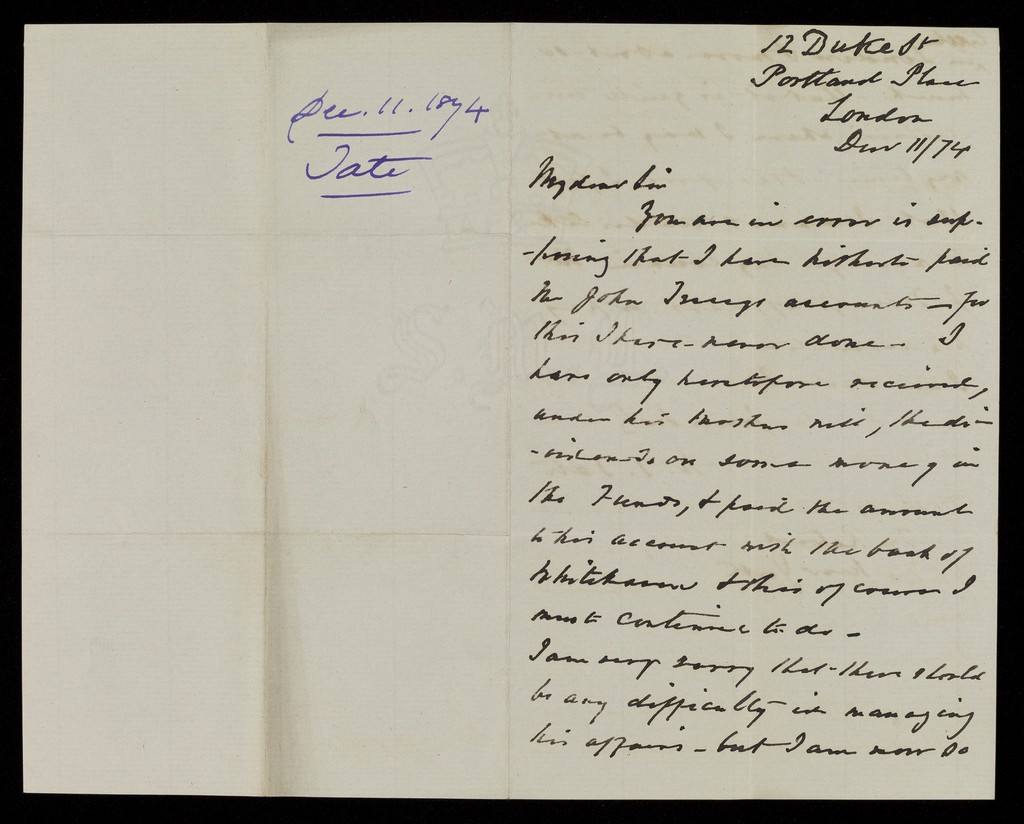 Dec. 11. 1874
Tate
12 Duke St
Portland Place
London
Dec 11/74
My dear Sir
You are in error is sup-
-posing that I have hitherto paid
Mr John accounts - for
this I have never done - I
have only heretofore received,
under his mother's will, the di-
-vidends on some money in
the Funds, & paid the amount
to his account with the bank of
Whitehaven & this of course I
must continue to do -
I am very sorry that there should
be any difficulty in managing
his affairs - but I am now so